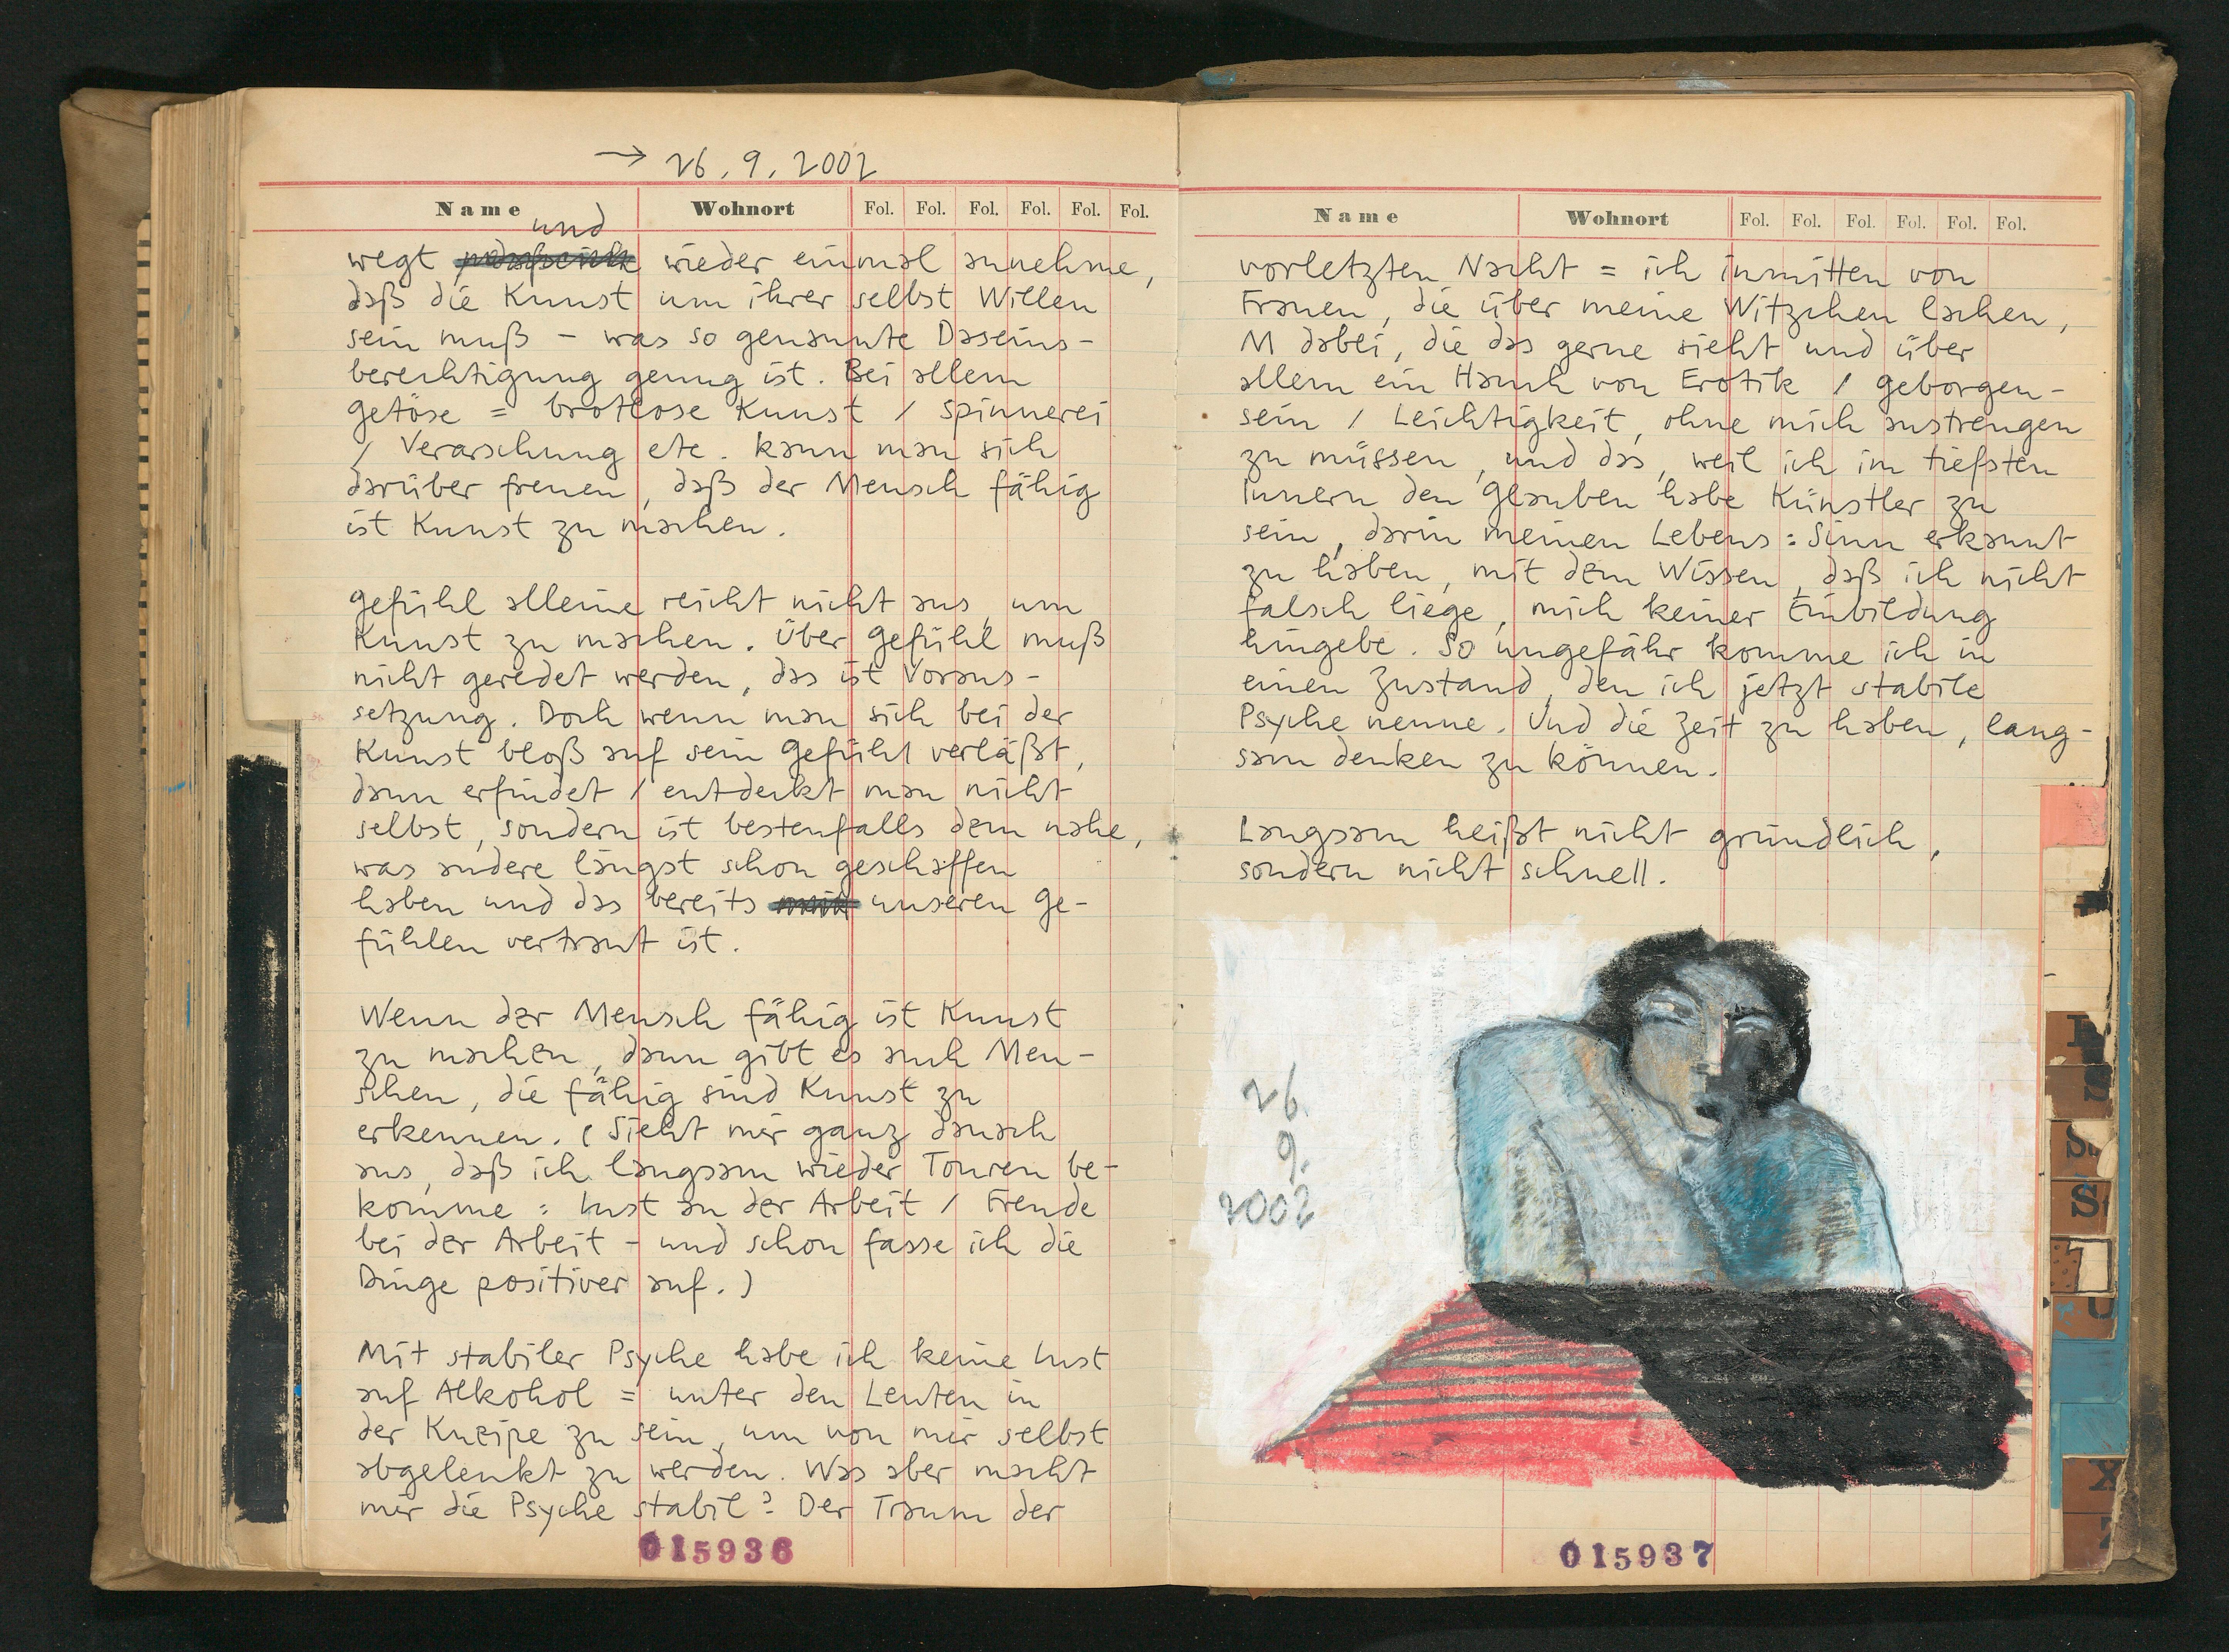 → 26.9.2002
Name Wohnort Fol. Fol. Fol. Fol. Fol. Fol.
und
wegt wieder einmal annehme,
daß die Kunst um ihrer selbst Willen
sein muß – was so genannte Daseins-
berechtigung genug ist. Bei allem
getöse = brotlose Kunst / Spinnerei
/ Verarschung etc. kann man sich
darüber freuen, daß der Mensch fähig
ist Kunst zu machen.
gefühl alleine reicht nicht aus, um
Kunst zu machen. Über gefühl muß
nicht geredet werden, das ist Voraus-
setzung. Doch wenn man sich bei der
Kunst bloß auf sein gefühl verläßt,
dann erfindet / entdeckt man nicht
selbst, sondern ist bestenfalls dem nahe,
was andere längst schon geschaffen
haben und das bereits unseren ge-
fühlen vertraut ist.
Wenn der Mensch fähig ist Kunst
zu machen, dann gibt es auch Men-
schen, die fähig sind Kunst zu
erkennen. (Sieht mir ganz danach
aus, daß ich langsam wieder Touren be-
komme : Lust an der Arbeit / Freude
bei der Arbeit – und schon fasse ich die
Dinge positiver auf.)
Mit stabiler Psyche habe ich keine Lust
auf Alkohol = unter den Leuten in
der Kneipe zu sein, um von mir selbst
abgelenkt zu werden. Was aber macht
mir die Psyche stabil? Der Traum der
015936
Name Wohnort Fol. Fol. Fol. Fol. Fol. Fol.
vorletzten Nacht = ich inmitten von
Frauen, die über meine Witzchen lachen,
M dabei, die das gerne sieht und über
allem ein Hauch von Erotik / geborgen-
sein / Leichtigkeit, ohne mich anstrengen
zu müssen, und das, weil ich im tiefsten
Innern den glauben habe Künstler zu
sein, darin meinen Lebens : Sinn erkannt
zu haben, mit dem Wissen, daß ich nicht
falsch liege, mich keiner Einbildung
hingebe. So ungefähr komme ich in
einen Zustand, den ich jetzt stabile
Psyche nenne. Und die Zeit zu haben, lang-
sam denken zu können.
Langsam heißt nicht gründlich,
sondern nicht schnell.
26.
9.
2002
015937
S
X